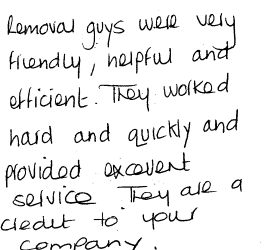 Removal guys were very
friendly, helpful and
efficient. They worked
hard and quickly and
provided excevent
service They are a
credit to your
company.